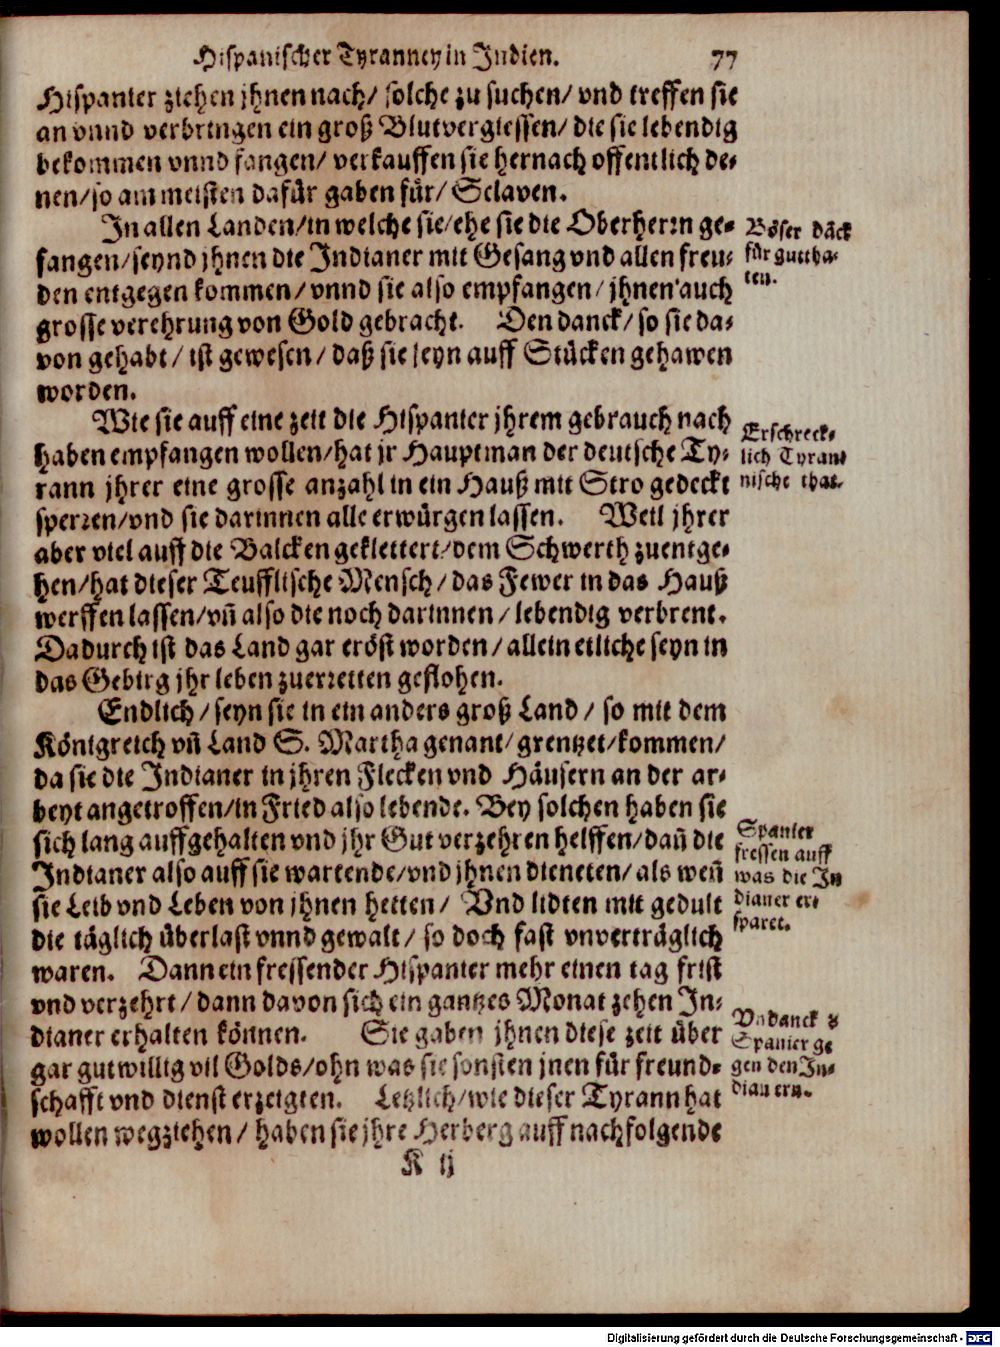 Hispanischer Tyranney in Indien. 77
Hispanier ziehen jhnen nach/ solche zu suchen/ vnd treffen sie
an vnnd verbringen ein groß Blutvergiessen/ die sie lebendig
bekommen vnnd fangen/ verkauffen sie hernach offentlich de-
nen/so am meisten dafür gaben für/ Sclaven.
In allen Landen/in welche sie/ehe sie die Oberherrn ge-
fangen/seynd jhnen die Indianer mit Gesang vnd allen freu-
den entgegen kommen/ vnnd sie also empfangen/ jhnen auch
grosse verehrung von Gold gebracht. Den danck/ so sie da-
von gehabt/ ist gewesen/ daß sie seyn auff Stücken gehawen
worden.
Böser däck
für guttha-
ten.
Wie sie auff eine zeit die Hispanier jhrem gebrauch nach
haben empfangen wollen/hat jr Hauptman der deutsche Ty-
rann jhrer eine grosse anzahl in ein Hauß mit Stro gedeckt
sperren/vnd sie darinnen alle erwürgen lassen. Weil jhrer
aber viel auff die Balcken geklettert/dem Schwerth zuentge-
hen/hat dieser Teufflische Mensch/das Fewer in das Hauß
werffen lassen/vñ also die noch darinnen/lebendig verbrent.
Dadurch ist das Land gar eröst worden/allein etliche seyn in
das Gebirg jhr leben zuerretten geflohen.
Erschreck-
lich Tyran-
nische that.
Endlich/seyn sie in ein anders groß Land/ so mit dem
Königreich vñ Land S. Martha genant/grentzet/kommen/
da sie die Indianer in jhren Flecken vnd Häusern an der ar-
beyt angetroffen/in Fried also lebende. Bey solchen haben sie
sich lang auffgehalten vnd jhr Gut verzehren helffen/dañ die
Indianer also auff sie wartende/vnd jhnen dieneten/als weñ
sie Leib vnd Leben von jhnen hetten/ Vnd lidten mit gedult
die täglich überlast vnnd gewalt/ so doch fast vnverträglich
waren. Dann ein fressender Hispanier mehr einen tag frist
vnd verzehrt/dann davon sich ein gantzes Monat zehen In-
dianer erhalten können. Sie gaben jhnen diese zeit über
gar gutwillig vil Golds/ohn was sie sonsten jnen für freund-
schafft vnd dienst erzeigten. Letzlich/wie dieser Tyrann hat
wollen wegziehen/ haben sie jhre Herberg auff nachfolgende
Spanier
fressen auff
was die In
dianer er-
sparet.
Vndanck d
Spanier ge
gen den In-
dianern.
K ij
Digitalisierung gefördert durch die Deutsche Forschungsgemeinschaft - DFG